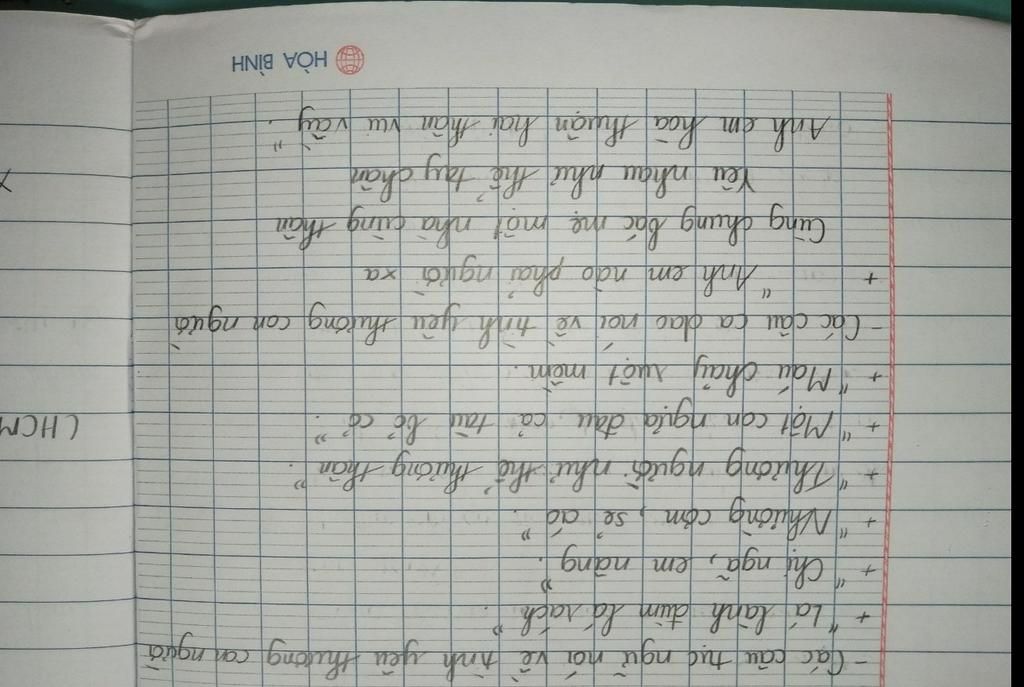 - Các câu tục ngữ nói về tình yêu thương con người
+ "Lá lành đùm lá rách".
+ "Chị ngã, em nâng".
+ "Nhường cơm, sẻ áo".
+ "Thương người như thể thương thân".
+ "Một con ngựa đau cả tàu bỏ cỏ".
+ "Máu chảy ruột mềm.
- Các câu ca dao nói về tình yêu thương con người
+ "Anh em nào phải người xa
Cùng chung bác mẹ một nhà cùng thân
Yêu nhau như thể tay chân
Anh em hòa thuận hai thân vui vầy".
HÒA BÌNH
(HCM